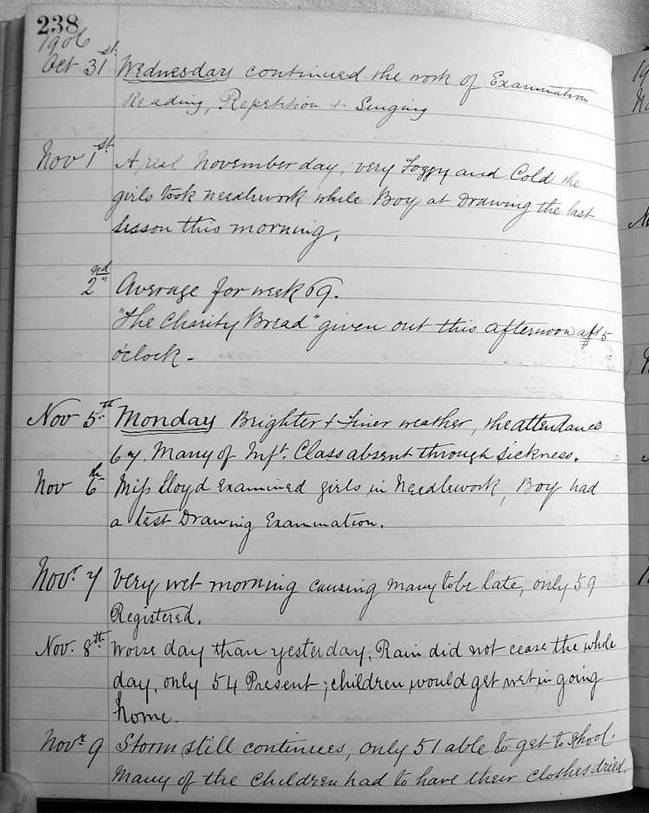 238
1906
Oct 31st. Wednesday continued the work of Examination
Reading, Repetition + Singing
Nov 1st. A real November day, very Foggy and Cold the
girls took needlework while Boy at Drawing the last
lesson this morning,
2nd " Average for week 69.
"The Charity Bread" given out this afternoon aft 5
o'clock -
Nov 5.th Monday Brighter + Finer weather, the attendance
67. Many of Inft. Class absent through sickness.
Nov 6th Miss Lloyd Examined girls in Needlework, Boy had
a test Drawing Examination.
Novr. 7 Very wet morning causing many to be late, only 59
Registered.
Nov. 8th. Worse day than yesterday; Rain did not cease the whole
day, only 54 Present; children would get wet in going
home.
Novr 9 Storm still continues, only 51 able to get to School.
Many of the Children had to have their clothes dried.